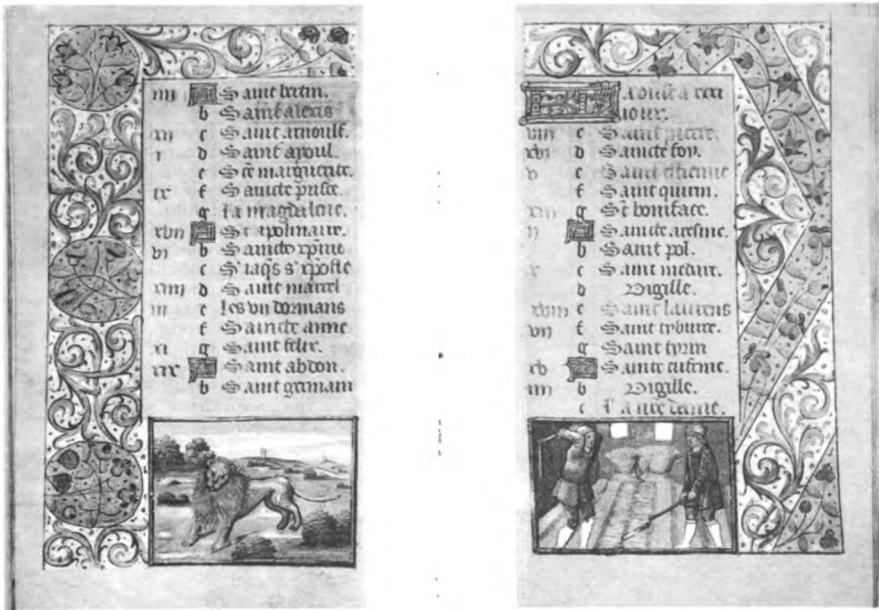 iiii A Saint bertin.
b Saint alexis
xii c Saint arnoult.
i d Saint apoul.
e Ste marguerite.
ix f Saincte
g La magdalene.
xvii A St apolinaire.
vi b Saincte xpine
c St iaqs s xpofle
xiiii d Saint marcel
iii e Les vii dormans
f Saincte anne
xi g Saint felix.
xix A Saint abdon.
b Saint germain
Aoust a xxxi
iour.
viii c Saint pierre.
xvi d Saincte foy.
v e Saint estienne
f Saint quirin.
xiii g St boniface.
ii A Saincte
b Saint pol.
x c Saint medart.
d Vigille.
xviii e Saint laurens
vii f Saint tyburce.
g Saint
xv A Saincte eufeme.
iiii b Vigille.
c La nre dame.